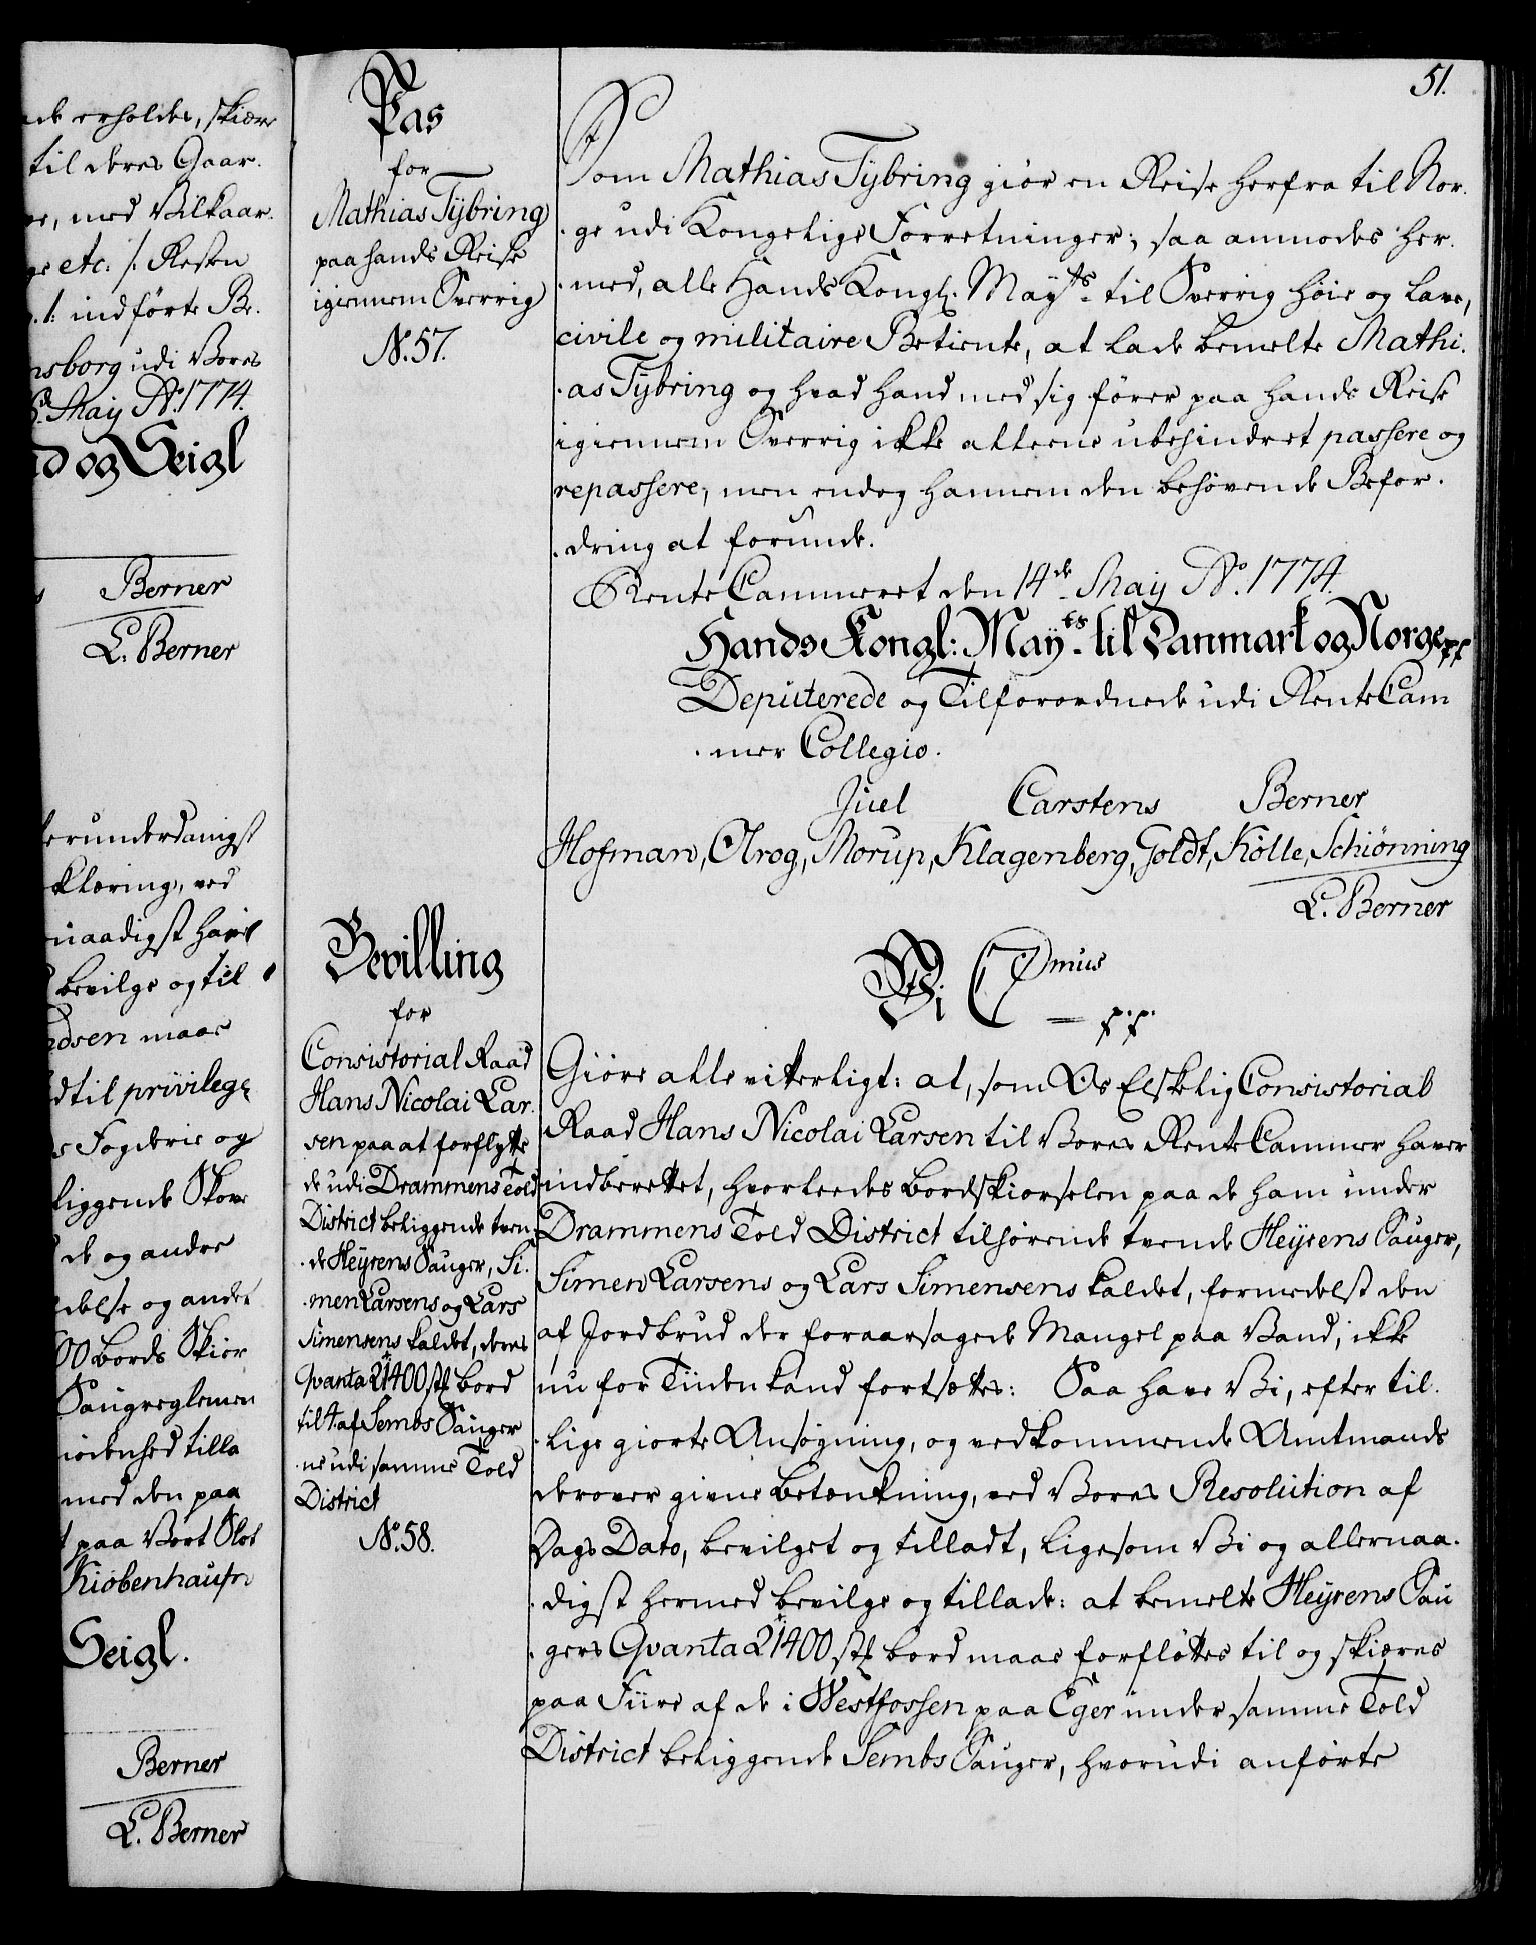 de erholdes, skiære
til deres Gaar.
med Vilkaar.
etc: /: Resten
indførte Be.
nsborg udi Vores
May Ao. 1774.
og Seigl
Berner
L. Berner
erunderdanigst
klæring, ved
naadigst have
bevilge og til
dsen maae
dtil privilege
Fogderie og
liggende Skove
de og andre
delse og andet
00 Bords Skiør
Saugreglemen
iødenhed tilla
med den paa
paa Vort Slot
Kiøbenhaufn
Seigl.
Berner
L. Berner
Pas
for
Mathias Tÿbring
paa hands Reise
igiennem Sverrig
No. 57.
Bevilling
for
Consistorial Raad
Hans Nicolai Lar.
sen paa at forflytte
de udi Drammens Told
District beliggende tven
de Heyrens Sauger, Si.
men Larsens og Lars
Simensens kaldet, deres
Qvanta 21400 stk bord
til 4 af Sembs Sauger
ne udi samme Told
District
No. 58.
51.
Som Mathias Tÿbring giør en Reise herfra til Nor.
ge udi Kongelige Forretninger; saa anmodes her.
med, alle Hands Kongl. Mayts. til Sverrig høie og lave,
civile og militaire Betiente, at lade bemelte Mathi.
as Tÿbring og hvad hand med sig fører paa hands Reise
igiennem Sverrig ikke alleene ubehindret passere og
repassere, men endog hannem den behøvende Befor.
dring at forunde.
Rente Cammeret den 14de May Ao. 1774.
Hands Kongl: Mayts. til Danmark og Norge pp
Deputerede og Tilforordnede udi Rente Cam
mer Collegio.
Juel Carstens Berner
Hofman, Olrog, Morup, Klagenberg, Goldt, Kölle, Schiønning
L. Berner
Vi C 7mus
p. p.
Giøre alle vitterligt: at, som Os Elskelig Consistorial
Raad Hans Nicolai Larsen til Vores Rente Cammer haver
indberettet, hvorleedes Bordskiørselen paa de ham under
Drammens Told District tilhørende tvende Heyrens Sauger,
Simen Larsens og Lars Simensens kaldet, formedelst den
af Jordbrud der foraarsagede Mangel paa Vand, ikke
nu for Tiiden kand fortsættes: Saa have Vi, efter til.
lige giorte Ansøgning, og vedkommende Amtmands
derover givne Betænkning, ved Vores Resolution af
Dags Dato, bevilget og tilladt, ligesom Vi og allernaa.
digst hermed bevilge og tillade: at bemelte Heyrens Sau
gers Qvanta 21400 stk bord maae forfløttes til og skiæres
paa Fiire af de i Westfossen paa Eger under samme Told
District beliggende Sembs Sauger, hvorudi anførte